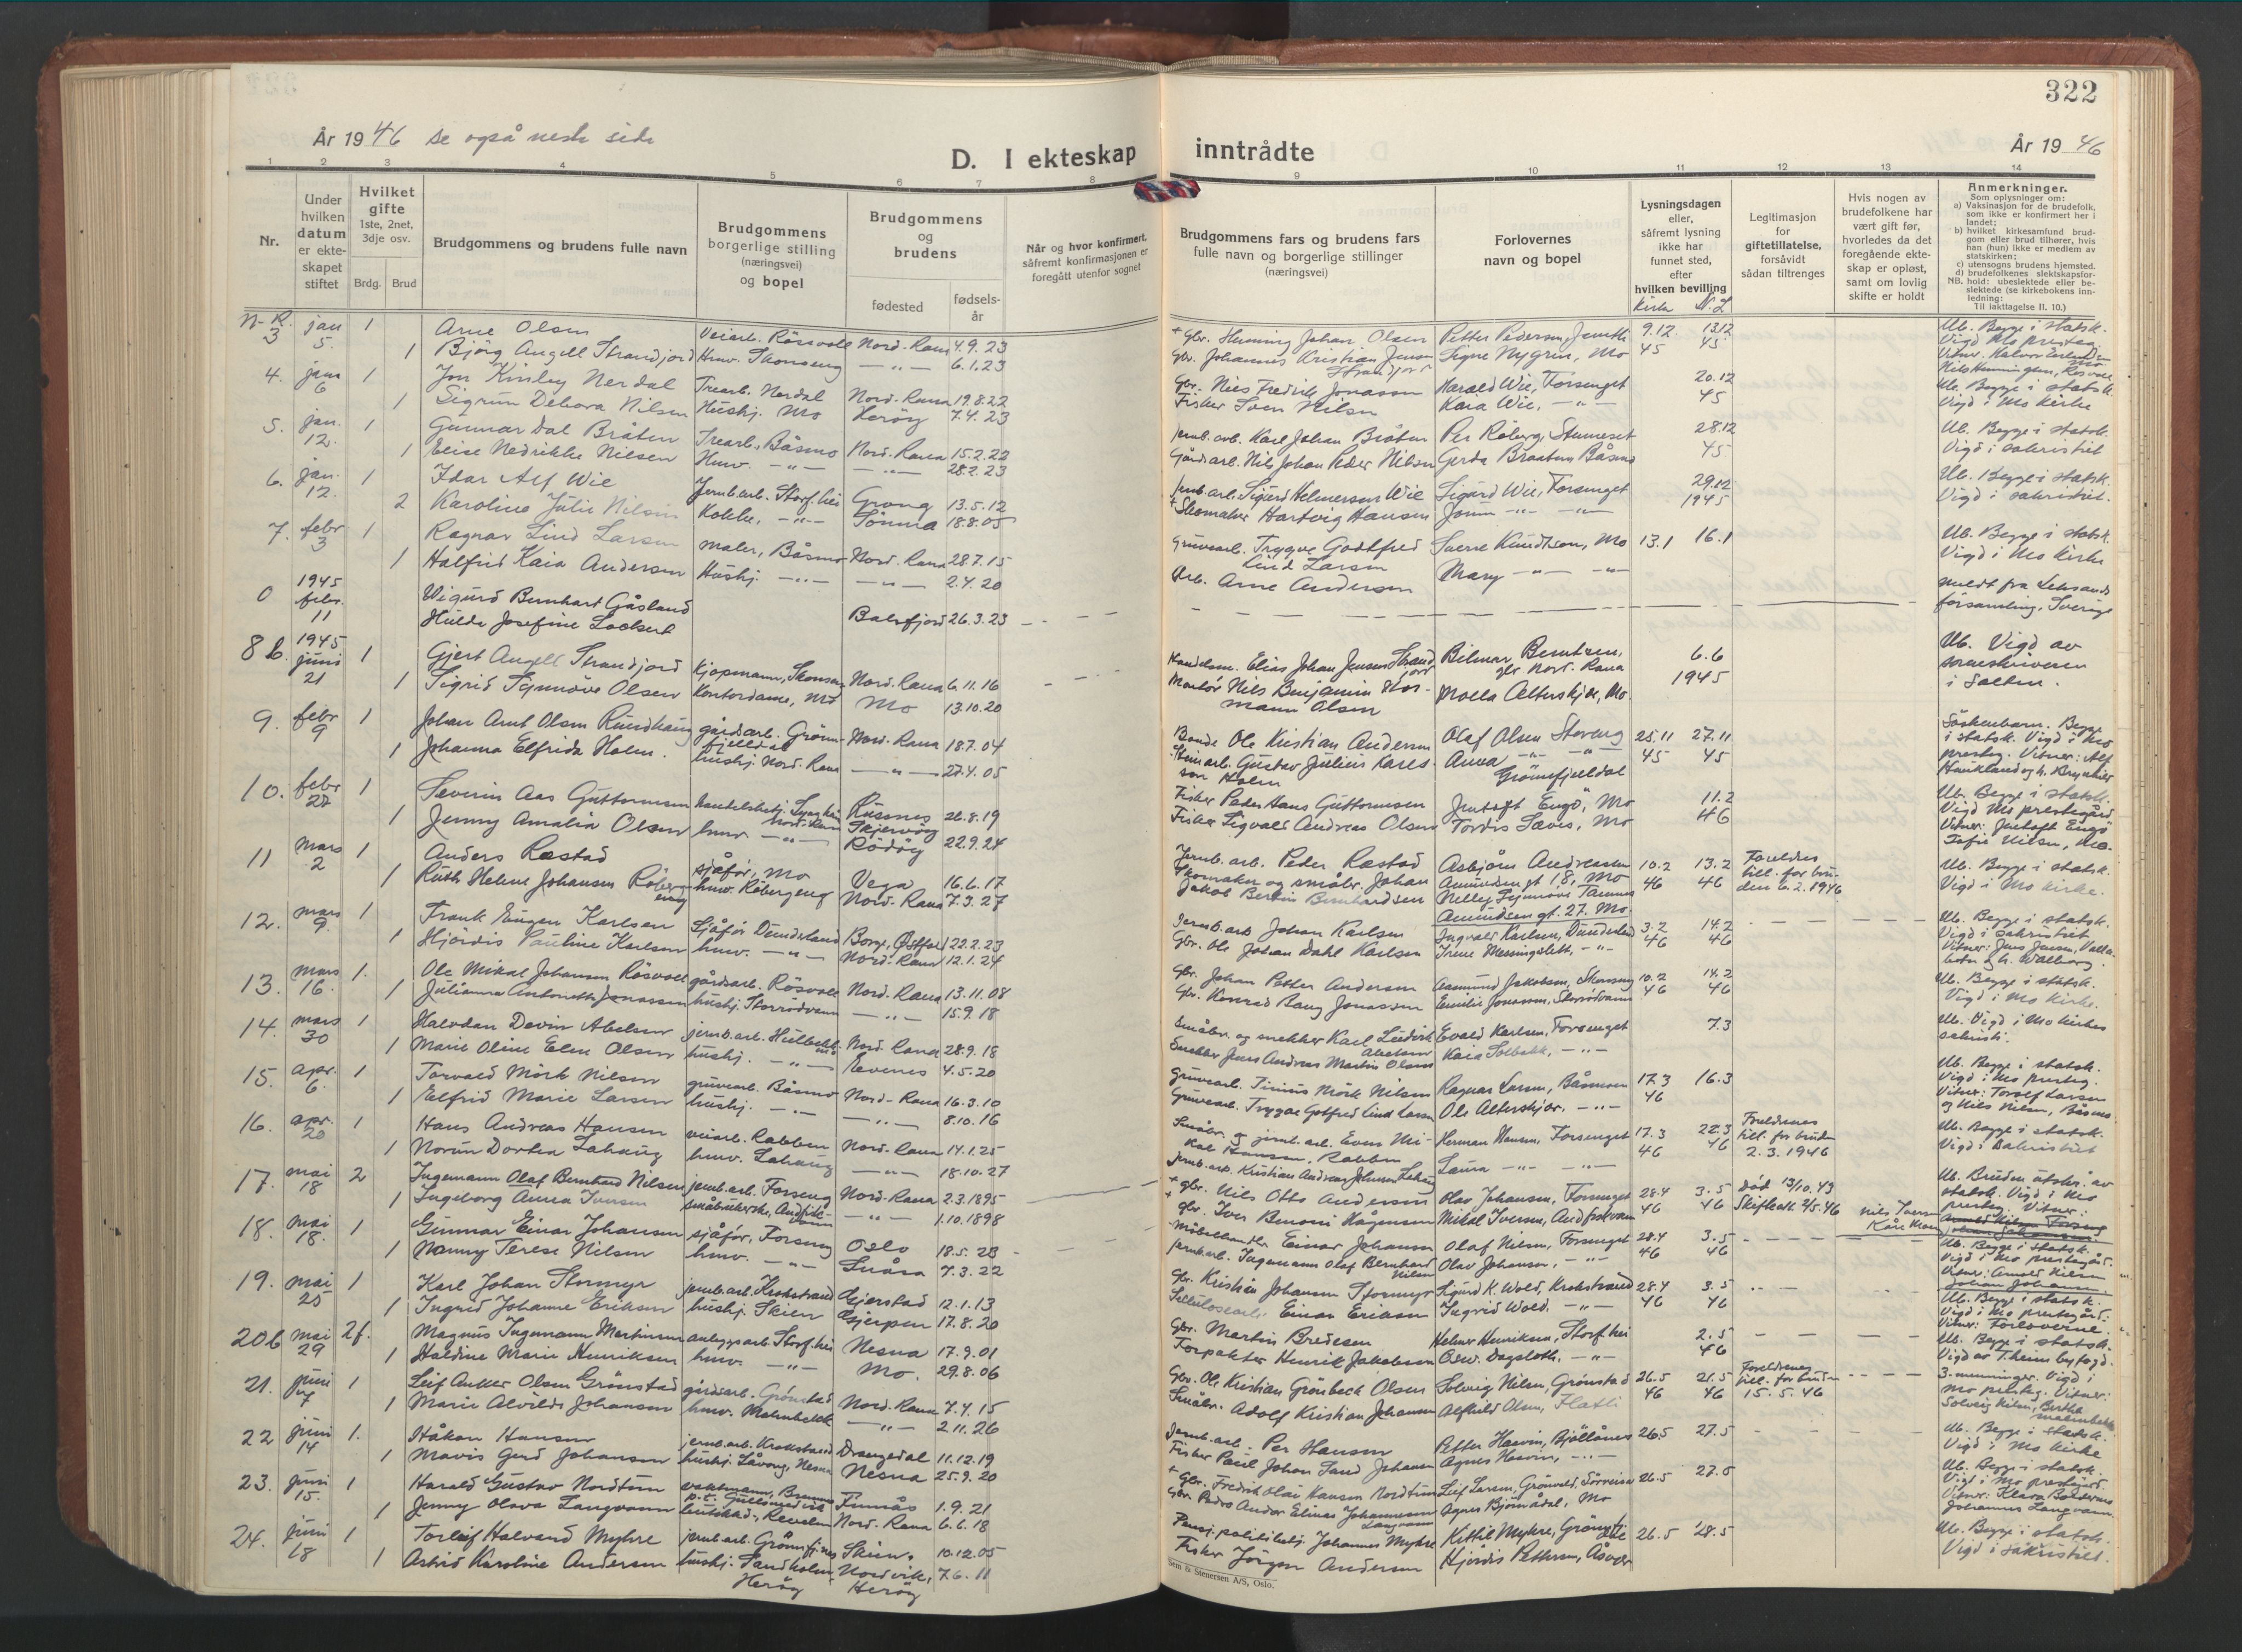 322
År 1946 se også neste side
D. I ekteskap inntrådte
År 1946
1 2 3 4 5 6 7 8 9 10 11 12 13 14
Nr.
Under hvilken datum er ekteskapet stiftet
Hvilket gifte 1ste, 2net, 3dje osv.
Brdg. Brud
Brudgommens og brudens fulle navn
Brudgommens borgerlige stilling (næringsvei) og bopel
Brudgommens og brudens
fødested fødselsår
Når og hvor konfirmert, såfremt konfirmasjonen er foregått utenfor sognet
Brudgommens fars og brudens fars fulle navn og borgerlige stillinger (næringsvei)
Forlovernes navn og bopel
Lysningsdagen eller, såfremt lysning ikke har funnet sted, efter hvilken bevilling
Kirke N.L
Legitimasjon for giftetillatelse, forsåvidt sådan tiltrenges
Hvis nogen av brudefolkene har vært gift før, hvorledes da det foregående ekteskap er opløst, samt om lovlig skifte er holdt
Anmerkninger.
Som oplysninger om:
a) Vaksinasjon for de brudefolk, som ikke er konfirmert her i landet;
b) hvilket kirkesamfund brudgom eller brud tilhører, hvis han (hun) ikke er medlem av statskirken;
c) utensogns brudens hjemsted.
d) brudefolkenes slektskapsforhold: ubeslektede eller beslektede (se kirkebokens innledning:
NB. Til iakttagelse II. 10.)
3 jan 5. 1 Arne Olsen Veiarb. Røsvoll Nord-Rana 4.9.23 + Gbr. Henning Johan Olsen Petter Pedersen, 9.12 13.12 Ub. Begge i statsk.
1 Bjørg Angell Strandjord Hmv. Skonseng — " — 6.1.23 Gbr. Johannes Kristian Jensen Strandjord Signe Nygren, Mo 45 45 Vigd Mo presteg.
4. jan 6 1 Jon Kinley Nerdal Trearb. Nerdal Nord-Rana 19.8.22 Gbr. Nils Fredrik Jonassen Harald Wie, Forsenget 20.12 Ub. Begge i statsk.
1 Sigrun Debora Nilsen Hushj. Mo Herøy 7.4.23 Fisker Sven Nilsen Kaia Wie, — " — 45 Vigd i Mo kirke
5. jan. 12. 1 Gunnar Dal Bråten Trearb., Båsmo Nord-Rana 15.2.22 Jernb.arb. Karl Johan Bråten Per Røberg, Stenneset 28.12 Ub. Begge i statsk.
1 Leise Nedrikke Nilsen Hmv. — " — — " — 28.2.23 Gårdsarb. Nils Johan Peder Nilsen Gerda Braaten Båsmo 45 Vigd i sakristiet
6. jan. 12. 1 Idar Alf Wie Jernb.arb. Storf.hei Grong 13.5.12 Jernb.arb. Sigurd Helmersen Wie Sigurd Wie, Forsenget 29.12 Ub. Begge i statsk.
2 Karoline Julie Nilsen Kokke, — " — Sømna 18.8.05 + Skomaker Hartvig Hansen — " — — " — 1945 Vigd i sakristiet.
7. febr 3 1 Ragnar Lind Larsen Maler, Båsmo Nord-Rana 28.7.15 Gruvearb. Trygve Godtfred Lind Larsen Sverre Knudtsen, Mo 13.1 16.1 Ub. Begge i statsk.
1 Halfrid Kaia Andersen Hushj. — " — — " — 2.4.20 Arb. Arne Andersen Mary — " — — " — Vigd i Mo kirke
0 1945 febr. 11 Wigurd Bernhart Gåsland meldt fra Leksands
Hulda Josefine Lockert Balsfjord 26.3.23 församling, Sverige
8 b. 1945 juni 21 1 Gjert Angell Strandjord Kjøpmann, Skonseng Nord-Rana 6.11.16 Handelsm. Elias Johan Jensen Strandjord Bilmar Berntsen, gbr Nord-Rana 6.6 Ub. Vigd av
1 Sigrid Synnøve Olsen Kontordame, Mo Mo 13.10.20 Montør Nils Benjamin Normann Olsen Molla Alterskjær, Mo. 1945 sorenskriveren i Salten.
9. febr 9 1 Johan Arnt Olsen Rundhaug gårdsarb. Grønnfjelldal Nord-Rana 18.7.04 Bonde Ole Kristian Andersen Olaf Olsen Storeng 25.11 27.11 Søskenbarn. Begge i statsk. Vigd i Mo
1 Johanna Elfrida Holm. hushj. Nord-Rana — " — 27.4.05 Gustav Julius Karlsson Holm Anna — " — Grønnfjelldal 45 45 presteg. Vitner: Alf
10. febr 27 1 Severin Aas Guttormsen Skjervøy 26.8.19 Fisker Peder Hans Guttormsen Jentoft Engø, Mo 11.2 Ub. Begge i statsk.
1 Jenny Amalia Olsen hmv. — " — Rødøy 22.9.24 Fisker Sigvald Andreas Olsen Tordis Sævis, Mo 46 Vigd Mo prestegård Vitner: Jentoft Engø Sofie Nilsen, Mo.
11 mars 2 1 Anders Ræstad sjåfør, Mo Vega 16.6.17 Jernb.arb. Peder Ræstad Asbjørn Andreassen Amundsen gt 18, Mo 10.2 13.2 Foreldres till. for bruden 6.2.1946 Ub. Begge i statsk.
1 Ruth Helene Johansen Røbergeng hmv. Røbergeng Nord-Rana 7.3.27 Skomaker og småbr. Johan Jakob Bertin Bernhardsen Nelly Synnøve Amundsen gt. 27. Mo. 46 46 Vigd i Mo kirke.
12. mars 9. 1 Frank Eugen Karlsen Sjåfør Dunderland Borge, Østfold 22.2.23 Jernb.arb Johan Karlsen Ingvald Karlsen, Dunderland 3.2 14.2 Ub. Begge i statsk.
1 Hjördis Pauline Karlsen hmv. — " — Nord-Rana 12.1.24 Gbr. Ole Johan Dahl Karlsen Irene Messingslett, — " — 46 46 Vigd i sakristiet Vitner: Jens Jensen,
13. mars 16. 1. Ole Mikal Johansen Røsvoll gårdsarb. Røsvoll Nord-Rana 13.11.08 Gbr. Johan Petter Andersen Aasmund Jakobsen, 10.2 14.2 Ub. Begge i statsk.
1 Julianna Antonette Jonassen hushj. Storrødvann — " — 15.9.18 Gbr. Konrad Rang Jonassen Emilie Jonassen, Storrødvann 46 46 Vigd i Mo kirke.
14. mars 30 1 Halvdan Devin Abelsen jernb.arb. Nord-Rana 28.9.18 Småbr. og snekker Karl Ludvik Abelsen Evald Karlsen, Forsenget 7.3 Ub. Vigd i Mo kirkes sakristi.
1 Marie Oline Elen Olsen hushj. — " — Evenes 4.5.20 Snekker Jens Andreas Martin Olsen Kaia Solbakk, — " —
15. apr. 6. 1 Torvald Mörk Nilsen gruvearb. Båsmo Nord-Rana 16.3.10 Gruvearb. Mörk Nilsen Ragnar Larsen, Båsmoen 17.3 16.3 Ub. Begge i statsk.
1 Elfrid Marie Larsen hushj. — " — — " — 8.10.16 Gruvearb. Trygve Gotfred Lind Larsen Ole Alterskjær. — " — 46 Vigd i Mo presteg. Vitner: Torolf Larsen og Nils Nilsen, Båsmo
16. apr. 20 1 Hans Andreas Hansen veiarb. Rabben Nord-Rana 14.1.25 Småbr. og jernb.arb. Even Mikal Hansen, Rabben Herman Hansen, Forsenget 17.3 22.3 Foreldrenes till. for bruden 2.3.1946 Ub. Begge i statsk.
1 Norun Dortea Lahaug hmv. Lahaug — " — 18.10.27 Jernb.arb. Kristian Andreas Johnsen Lahaug Laura — " — — " — 46 46 Vigd i Sakristiet
17. mai 18 2 Ingemann Olaf Bernhard Nilsen jernb.arb. Forseng Nord-Rana 2.3.1895 + gbr. Nils Otto Andersen Olav Johansen, Forsenget 28.4 3.5 død 13/10.43 Ub. Bruden utstr. av statsk. Vigd i Mo
1 Ingeborg Anna Iversen småbrukerske, Andfiskvann — " — 1.10.1898 + gbr. Iver Benoni Hågensen Mikal Iversen, Andfiskvann 46 46 Skifteatt 2/5.46 presteg. Vitner: Nils Iversen
18. mai 18. 1 Gunnar Einar Johansen sjåfør, Forseng Oslo 18.5.23 Møbelhandler Einar Johansen Olaf Nilsen, Forsenget 28.4 3.5 Ub. Begge i statsk.
1 Nanny Terese Nilsen hmv. — " — Snåsa 7.3.22 Jernb.arb. Ingemann Olaf Bernhard Nilsen Olav Johansen, — " — 46 46 Vigd i Mo prestegård. Vitner: Arnold Nilsen Johan Johansen
19. mai 25 1 Karl Johan Stormyr jernb.arb. Krokstrand Gjerstad 12.1.13 Gbr. Kristian Johansen Stormyr Sigurd K. Wold, Krokstrand 28.4 3.5 Ub. Begge i statsk.
1 Ingrid Johanne Eriksen hushj. Skien Gjerpen 17.8.20 Cellulosearb. Einar Eriksen Ingrid Wold. — " — 46 46 Vigd i Mo prestegård. Vitner: Forloverne.
20b mai 29 2f. Magnus Ingemann Martinsen anleggsarb Storf.hei Nesna 17.9.01 Gbr. Martin Bredesen Helmer Henriksen, Storf.hei 2.5 Ub. Begge i statsk.
1 Haldine Marie Henriksen hmv. — " — Mo. 29.8.06 Forpakter Henrik Jakobsen Osw. Dagsloth, — " — 46 Vigd av T.heim byfogd.
21. juni 7 1 Leif Anker Olsen Grönstad gårdsarb. Grönstad Nord-Rana 7.4.15 Gbr. Ole Kristian Grönbeck Olsen Solveig Nilsen, Grönstad 26.5 21.5 Foreldrenes till. for bruden 15.5.46 3-menninger. Vigd i
1 Marie Alvilde Johansen hmv. Malmbekk — " — 2.11.26 Småbr. Adolf Kristian Johansen Alfhild Olsen, Flatli 46 46 Mo presteg. Vitner: Solveig Nilsen, Bertha Malmbekk
22 juni 14 1. Håkon Hansen jernb.arb. Krokstrand Drangedal 11.12.19 Jernb.arb. Per Hansen Petter Hasvin, Bjöllånes 26.5 27.5 Ub. Begge i statsk.
1 Mavis Gerd Johansen hushj. Låvong, Nesna Nesna 25.9.20 Fisker Paul Johan Sand Johansen Agnes Hasvin, — " — Vigd i Mo kirke
23. juni 15. 1 Harald Gustav Nordtun vaktmann, Finnås 1.9.21 + Gbr. Fredrik Olai Hansen Nordtun Leif Larsen, Grönvold, 26.5 27.5 Ub. Begge i statsk.
1 Jenny Olava Langvann Nord-Rana 6.6.18 Gbr. Peder Andor Elinus Johannesen Langvann Agnes Bjørnådal, Mo Vigd i Mo prestegård. Vitner: Klara Johannes Langvann
24. juni 18 1 Torleif Halvard Myhre jernb.arb. Grønnfj.nes Skien. 10.12.05 Pensj. politibetj. Johannes Myhre Kittil Myhre, 26.5 28.5 Ub. Begge i statsk.
1 Astrid Karoline Andersen hushj. Sandholm, Herøy Nordvik, Herøy 7.6.11 Fisker Jörgen Andersen Hjördis Pettersen, Åsver Vigd i sakristiet.
Sem & Stenersen A/S, Oslo.